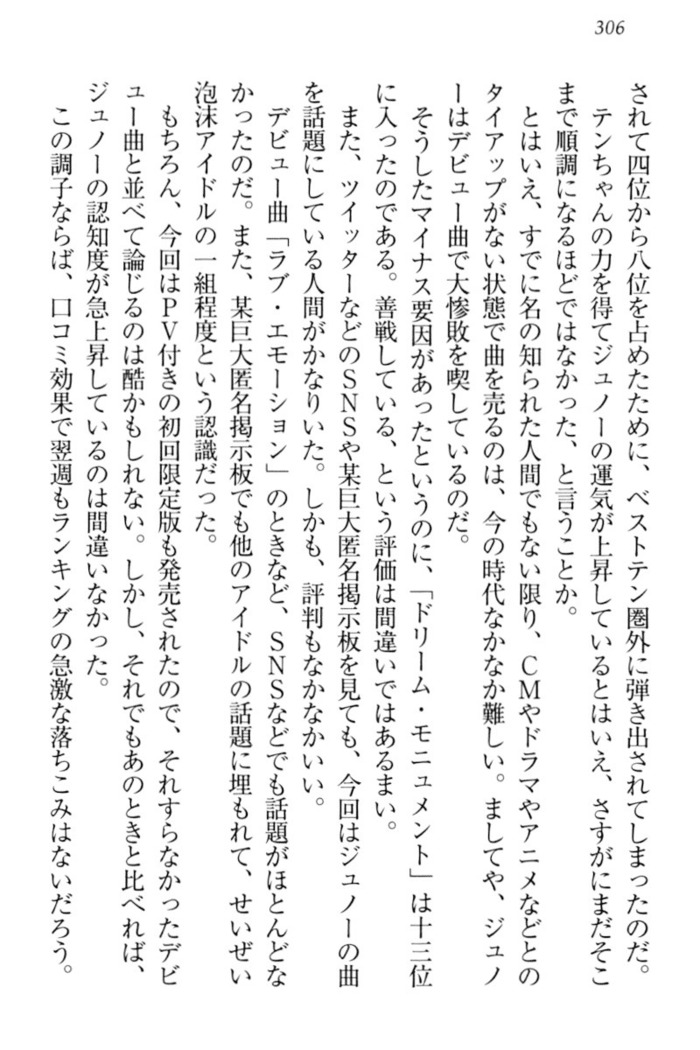 306
されて四位から八位を占めたために、ベストテン圏外に弾き出されてしまったのだ。
テンちゃんの力を得てジュノーの運気が上昇しているとはいえ、さすがにまだそこ
まで順調になるほどではなかった、と言うことか。
とはいえ、すでに名の知られた人間でもない限り、ＣＭやドラマやアニメなどとの
タイアップがない状態で曲を売るのは、今の時代なかなか難しい。ましてや、ジュノ
ーはデビュー曲で大惨敗を喫しているのだ。
そうしたマイナス要因があったというのに、「ドリーム・モニュメント」は十三位
に入ったのである。善戦している、という評価は間違いではあるまい。
また、ツイッターなどのＳＮＳや某巨大匿名掲示板を見ても、今回はジュノーの曲
を話題にしている人間がかなりいた。しかも、評判もなかなかいい。
デビュー曲「ラブ・エモーション」のときなど、ＳＮＳなどでも話題がほとんどな
かったのだ。また、某巨大匿名掲示板でも他のアイドルの話題に埋もれて、せいぜい
泡沫アイドルの一組程度という認識だった。
もちろん、今回はＰＶ付きの初回限定版も発売されたので、それすらなかったデビ
ュー曲と並べて論じるのは酷かもしれない。しかし、それでもあのときと比べれば、
ジュノーの認知度が急上昇しているのは間違いなかった。
この調子ならば、口コミ効果で翌週もランキングの急激な落ちこみはないだろう。